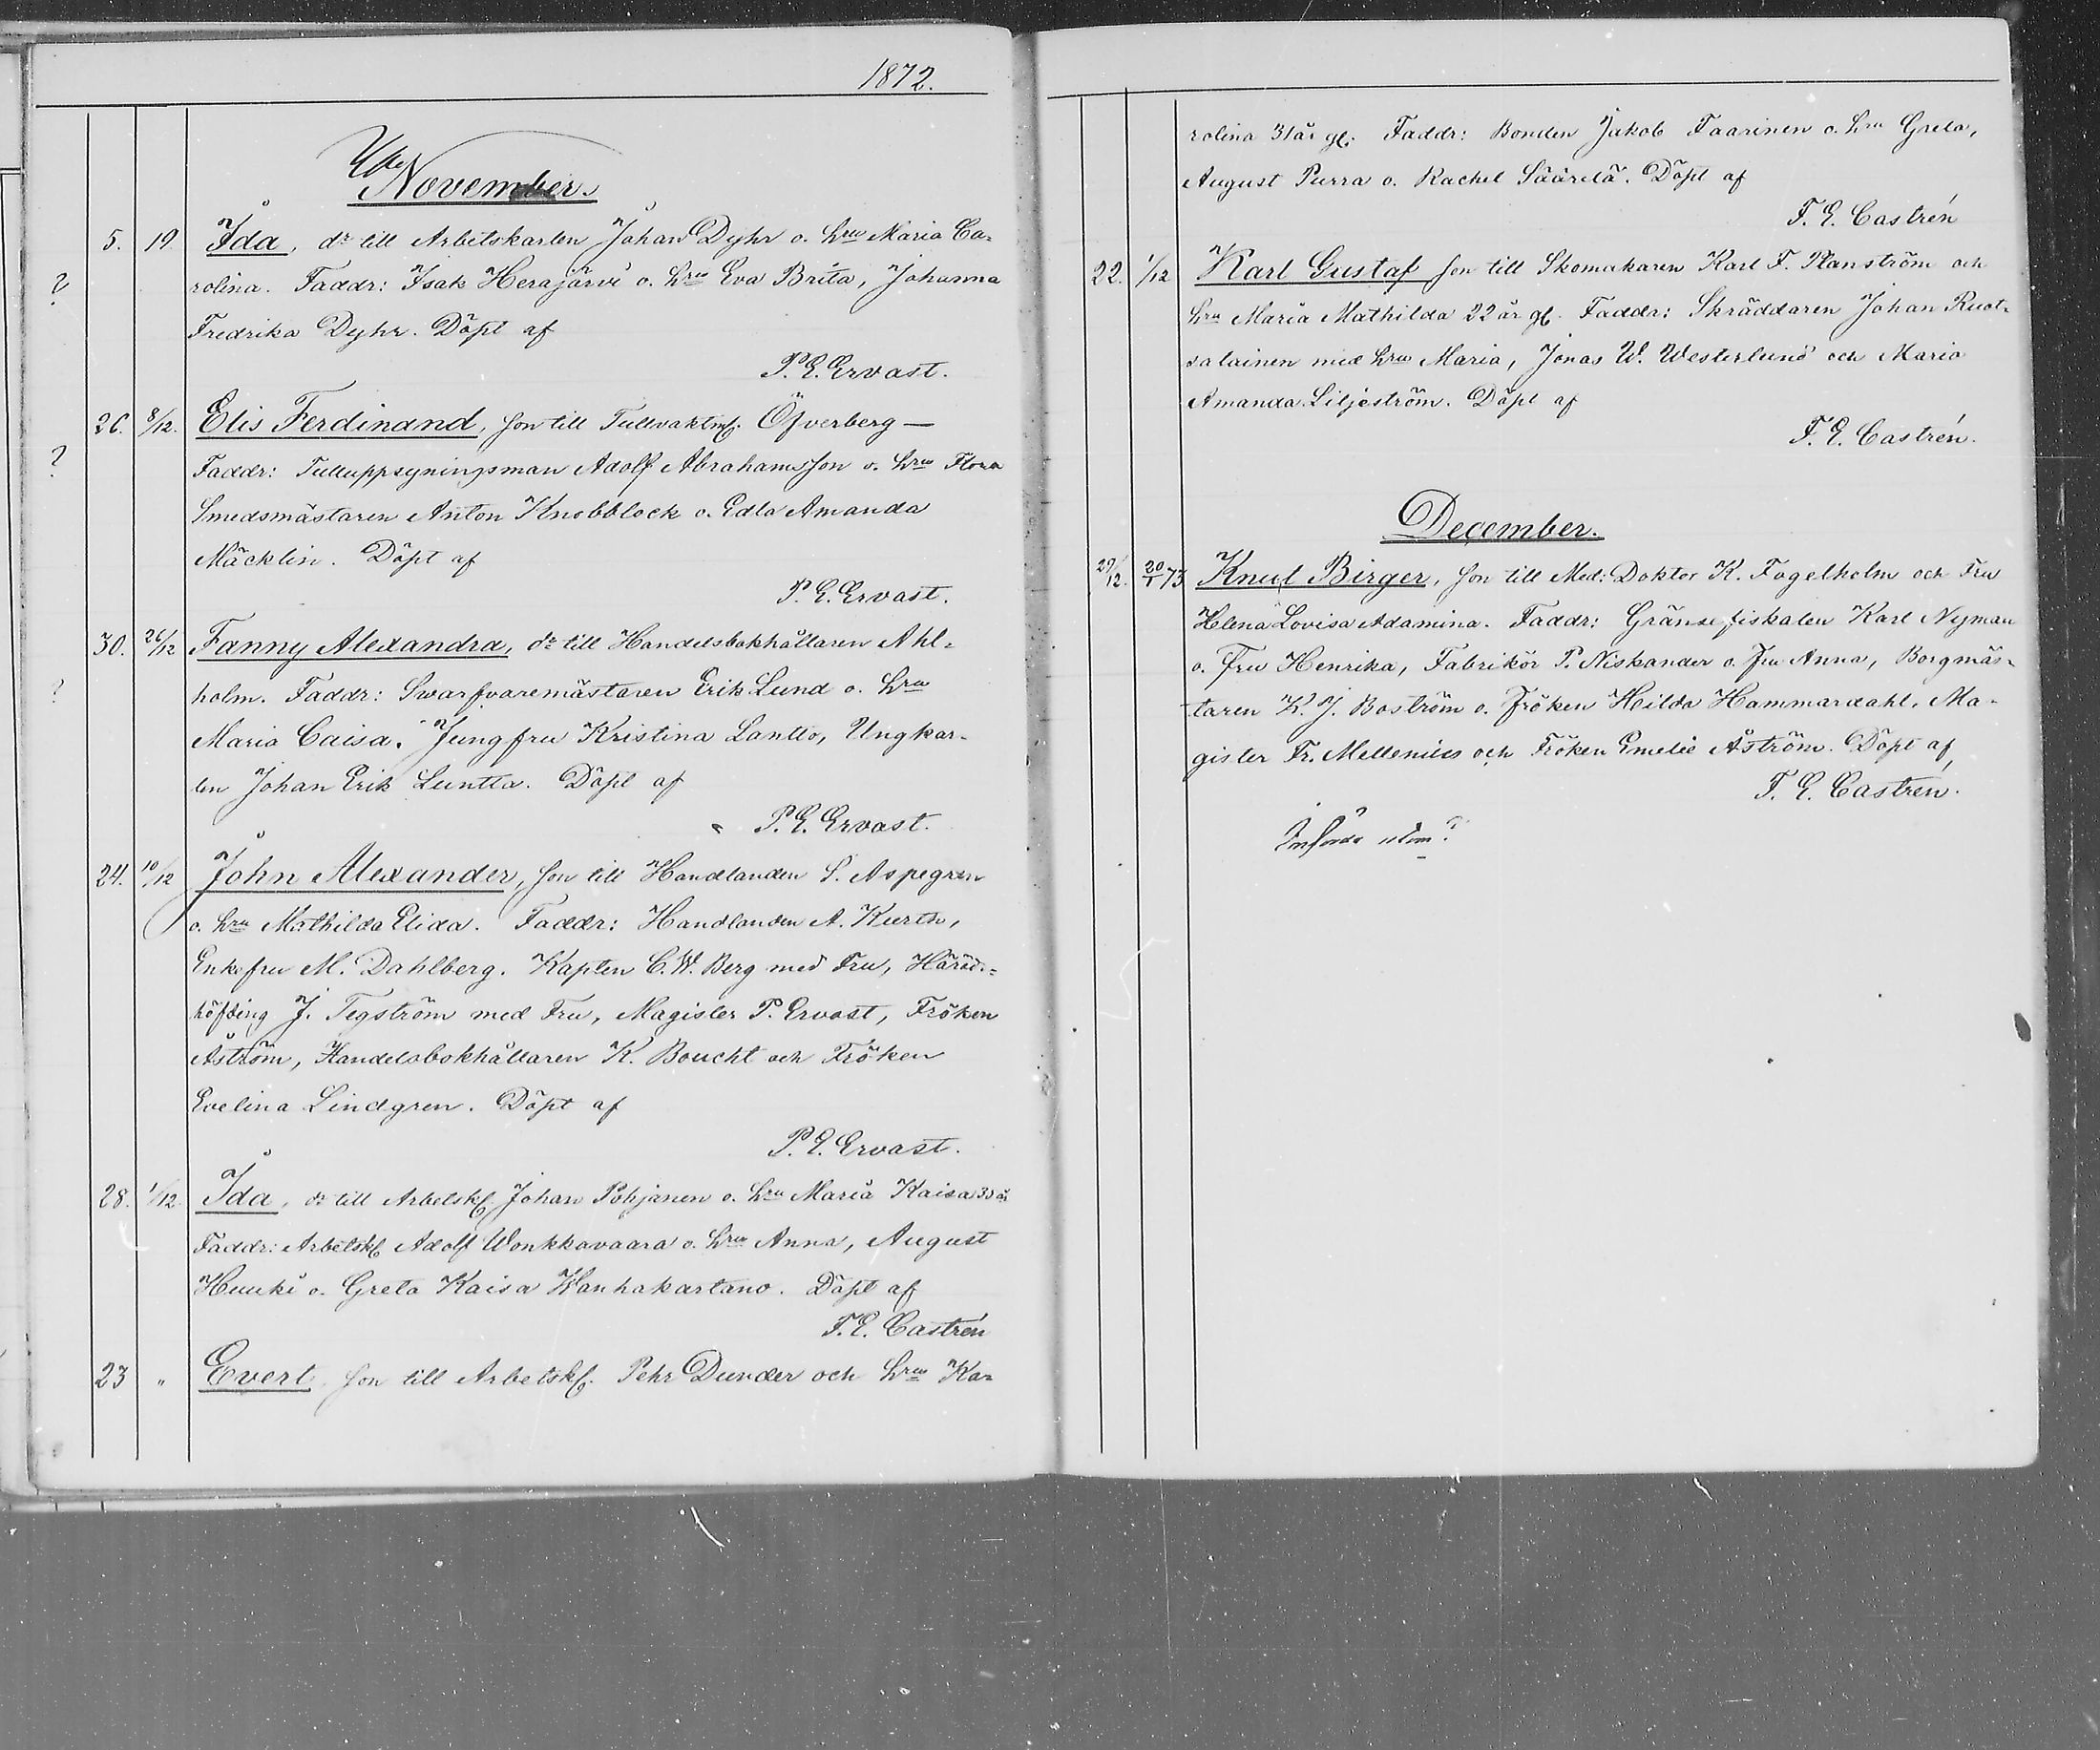 1872.
November.
5. 19 Ida, dr till Arbetskarlen Johan Dyhr o. hru Maria Ca-
? rolina. Faddr: Isak Herajärvi o. hru Eva Brita, Johanna
Fredrika Dyhr. Döpt af
P. E. Ervast.
26. 8/12. Elis Ferdinand, son till Tullvaktm. Öfverberg —
? Faddr: Tulluppsyningsman Adolf Abrahamsson o. hru Flora
Smedsmästaren Anton Knobblock o. Edla Amanda
Mäcklin. Döpt af
P. E. Ervast.
30. 26/12 Fanny Alexandra, dr till Handelsbokhållaren Ahl-
? holm. Faddr: Swarfvaremästaren Erik Lund o. hru
Maria Caisa. Jungfru Kristina Lantto, Ungkar-
len Johan Erik Luntta. Döpt af
P. E. Ervast.
24. 10/12 John Alexander, son till Handlanden S. Aspegren
o. hru Mathilda Elida. Faddr: Handlanden A. Kurth,
Enkefru M. Dahlberg. Kapten C. W. Berg med Fru, Härads-
höfding J. Tegström med Fru, Magister P. Ervast, Fröken
Åström, Handelsbokhållaren K. Boucht och Fröken
Evelina Lindgren. Döpt af
P. E. Ervast.
28. 1/12 Ida, dr till Arbetsk. Johan Pohjanen o. hru Maria Kaisa 30 år
Faddr: Arbetsk. Adolf Wonkkavaara o. hru Anna, August
Huuki o. Greta Kaisa Wanhakartano. Döpt af
F. E. Castrén
23 " Evert, son till Arbetsk. Pehr Dunder och hru Ka-
rolina 31 år gl. Faddr: Bonden Jakob Faarinen o. hru Greta,
August Purra o. Rachel Säärelä. Döpt af
F. E. Castrén
22. 1/12 Karl Gustaf son till Skomakaren Karl F. Planström och
hru Maria Mathilda 22 år gl. Faddr: Skräddaren Johan Ruot-
salainen med hru Maria, Jonas W. Westerlund och Maria
Amanda Liljeström. Döpt af
F. E. Castrén.
December.
29/12. 20/1 73 Knut Birger, son till Med: Doktor K. Fogelholm och Fru
Helena Lovisa Adamina. Faddr: Gränsefiskalen Karl Nyman
o. Fru Henrika, Fabrikör P. Niskander o. Fru Anna, Borgmäs-
taren K. J. Boström o. Fröken Hilda Hammardahl, Ma-
gister Fr. Mellenius och Fröken Emelie Åström. Döpt af
F. E. Castrén.